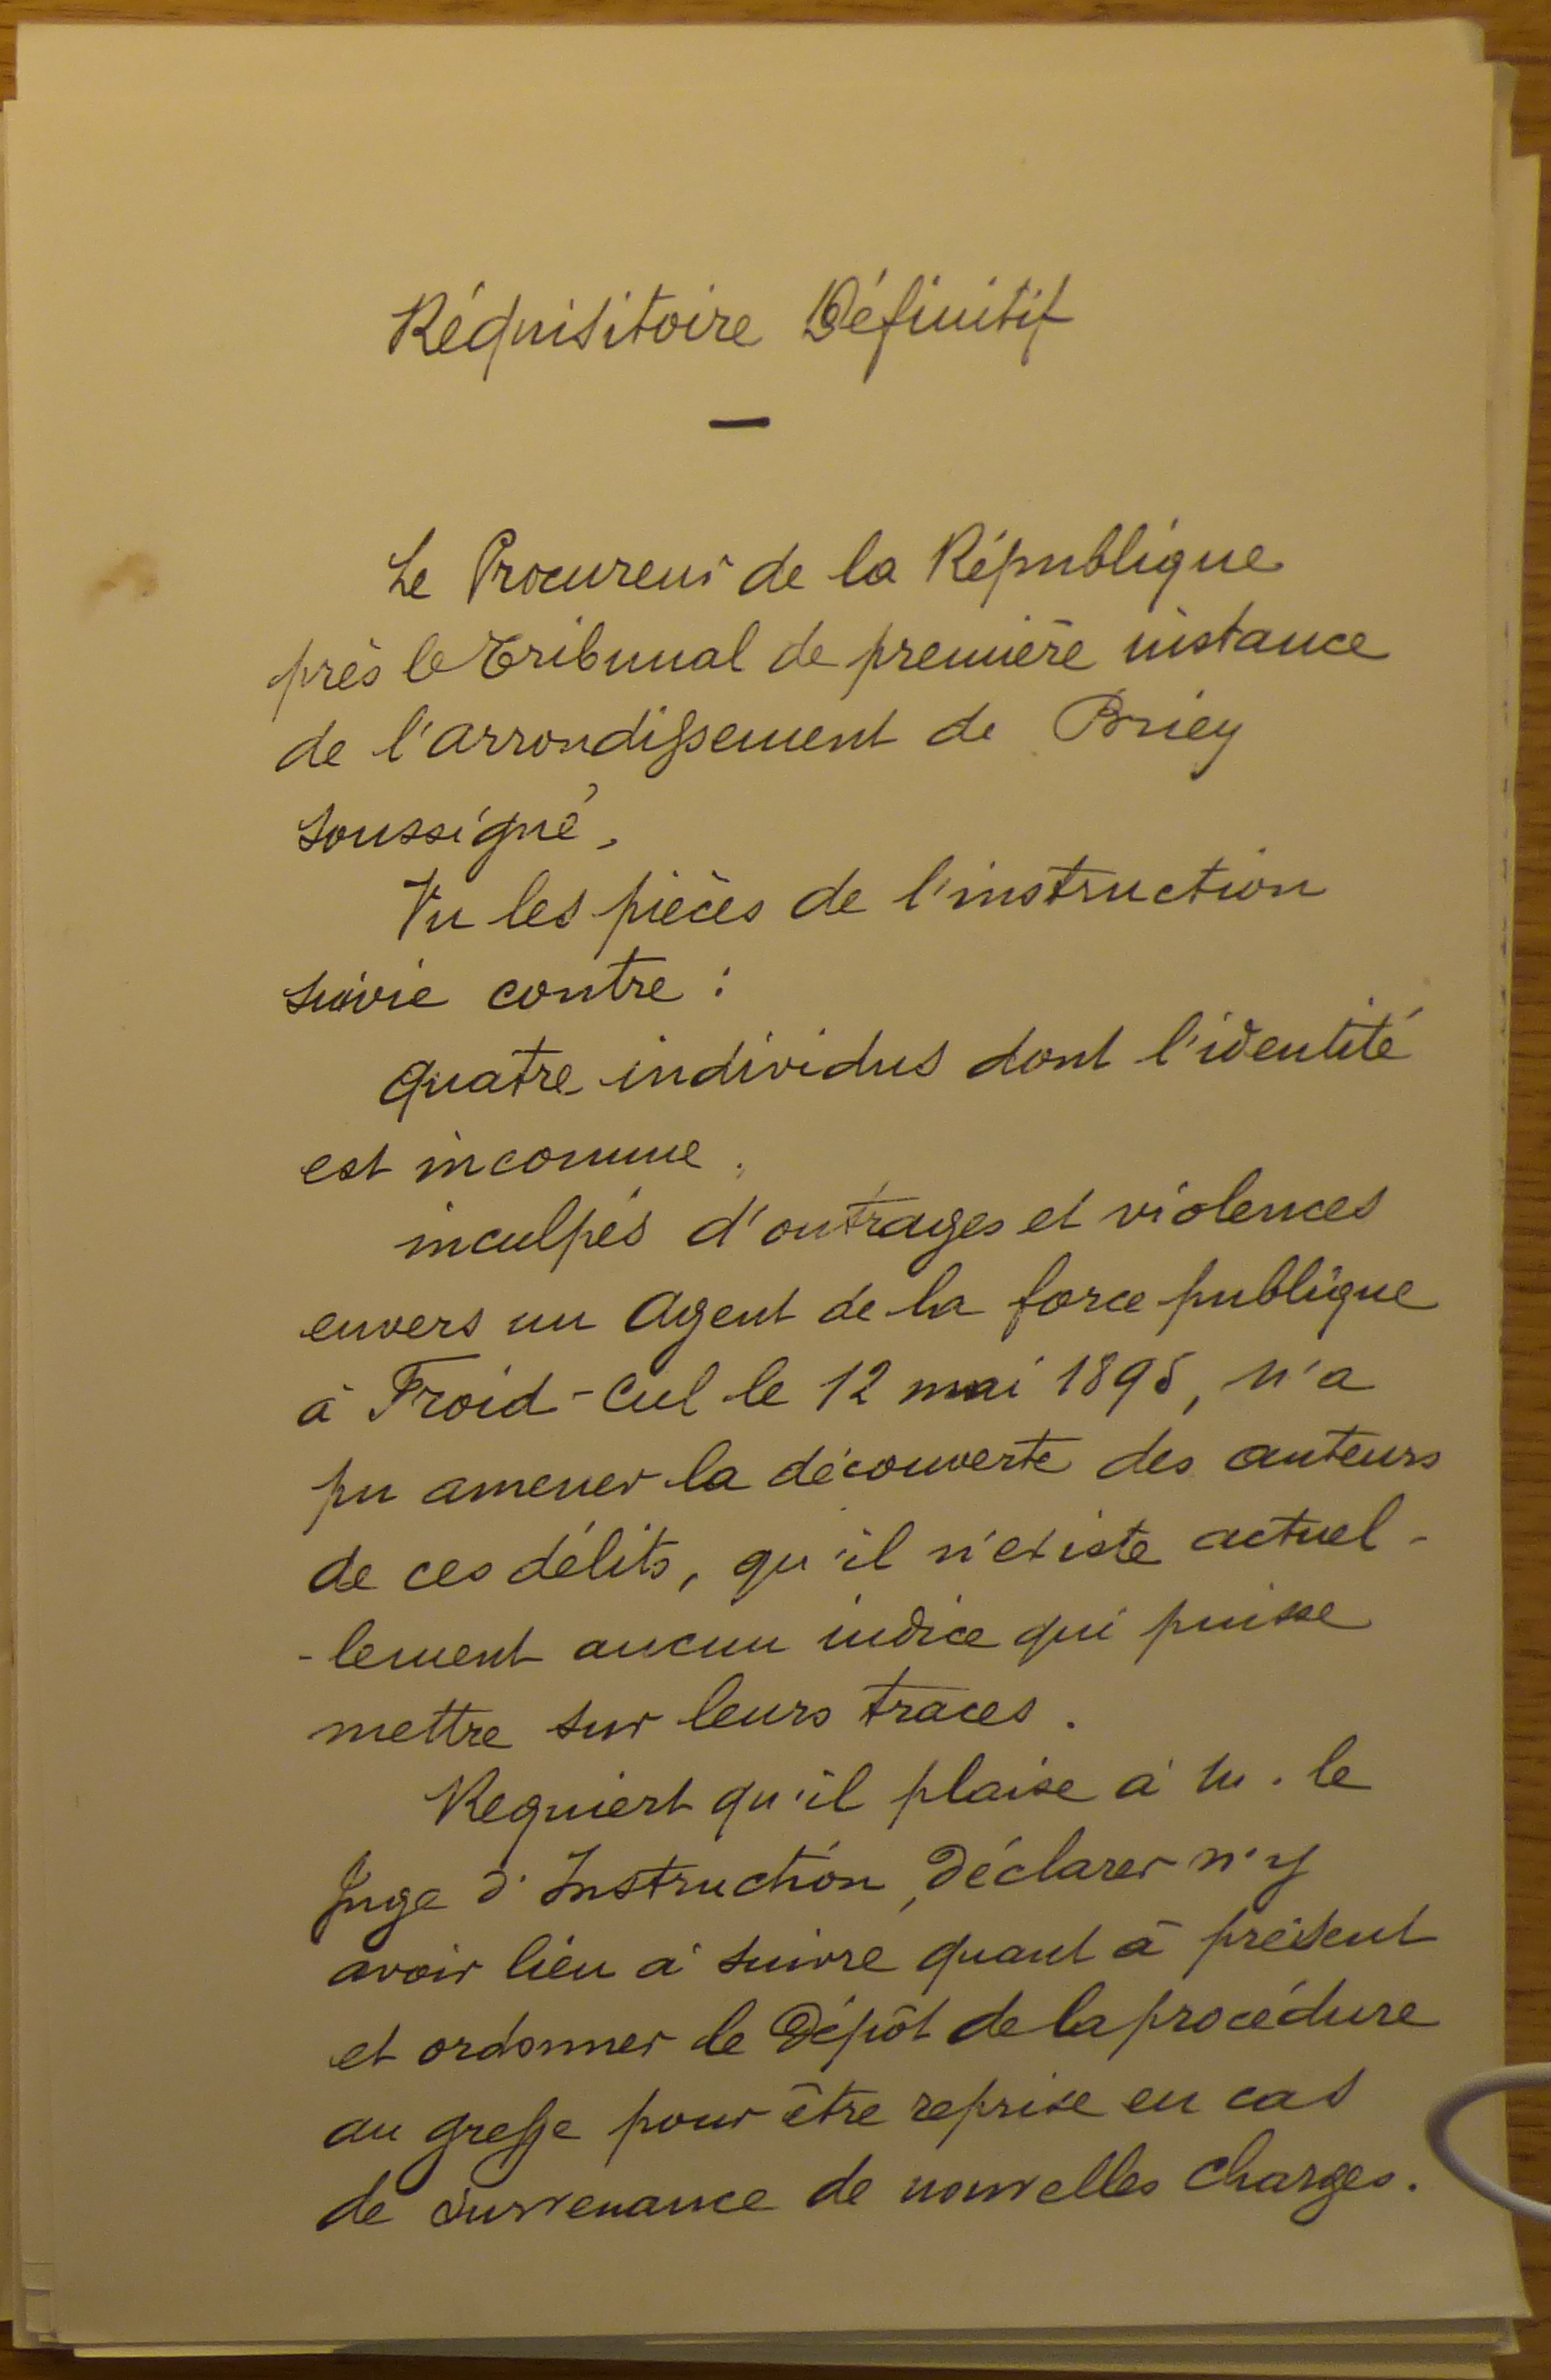 Réquisitoire Définitif
—
Le Procureur de la République
près le Tribunal de première instance
de l'arrondissement de Briey
soussigné,
Vu les pièces de l'instruction
suivie contre :
quatre individus dont l'identité
est inconnue,
inculpés d'outrages et violences
envers un Agent de la force publique
à Froid-Cul le 12 mai 1895, n'a
pu amener la découverte des auteurs
de ces délits, qu'il n'existe actuel-
-lement aucun indice qui puisse
mettre sur leurs traces.
Requiert qu'il plaise à M. le
Juge d'Instruction, Déclarer n'y
avoir lieu à suivre quant à présent
et ordonner le Dépôt de la procédure
au greffe pour être reprise en cas
de survenance de nouvelles charges.